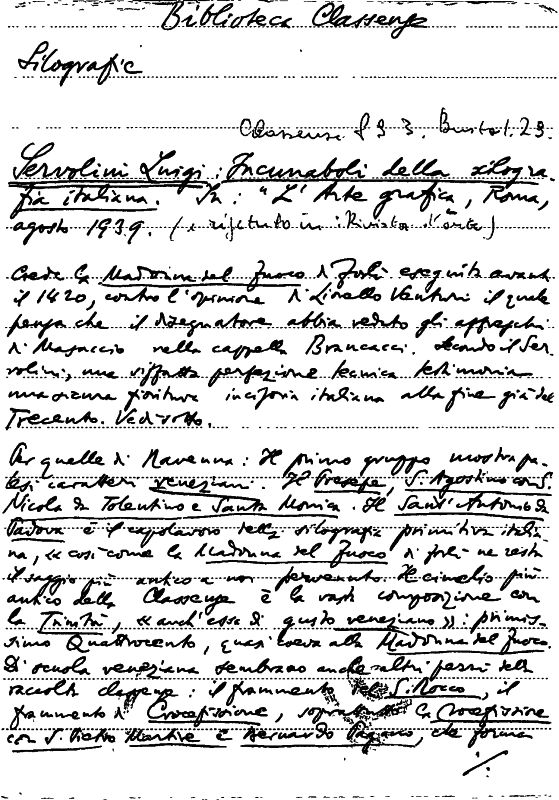 Biblioteca Classense
Silografie
Classense 893. Busta 1.29.
Servolini Luigi: Incunaboli della xilogra-
fia italiana. In: "L'Arte grafica, Roma,
agosto 1939. (e rifetuto in: Rivista d'arte)
Crede la Madonna del Fuoco di Forlì eseguita avanti
il 1420, contro l'opinione di Lionello Venturi il quale
pensa che il disegnatore abbia veduto gli affreschi
di Masaccio nella cappella Brancacci. Secondo il Ser-
volini, una siffatta perfezione tecnica testimonia
una sicura fioritura incisoria italiana alla fine già del
Trecento. Vedi sotto.
Per quelle di Ravenna: Il primo gruppo mostra pa-
lesi caratteri veneziani. Il Presepe, S. Agostino con S.
Nicola da Tolentino e Santa Monica. Il Sant'Antonio da
Padova è il capolavoro della silografia primitiva italia-
na, «così come la Madonna del Fuoco di Forlì ne resta
il saggio più antico a noi pervenuto. Il cimelio più
antico della Classense è la vasta composizione con
la Trinità, «anch'essa di gusto veneziano»: primis-
simo Quattrocento, quasi coeva alla Madonna del Fuoco.
Di scuola veneziana sembrano anche altri pezzi della
raccolta classense: il frammento del S. Rocco, il
frammento di Crocefissione, soprattutto la Crocefissione
con S. Pietro Martire e Bernardo Pagano, che forma
./.